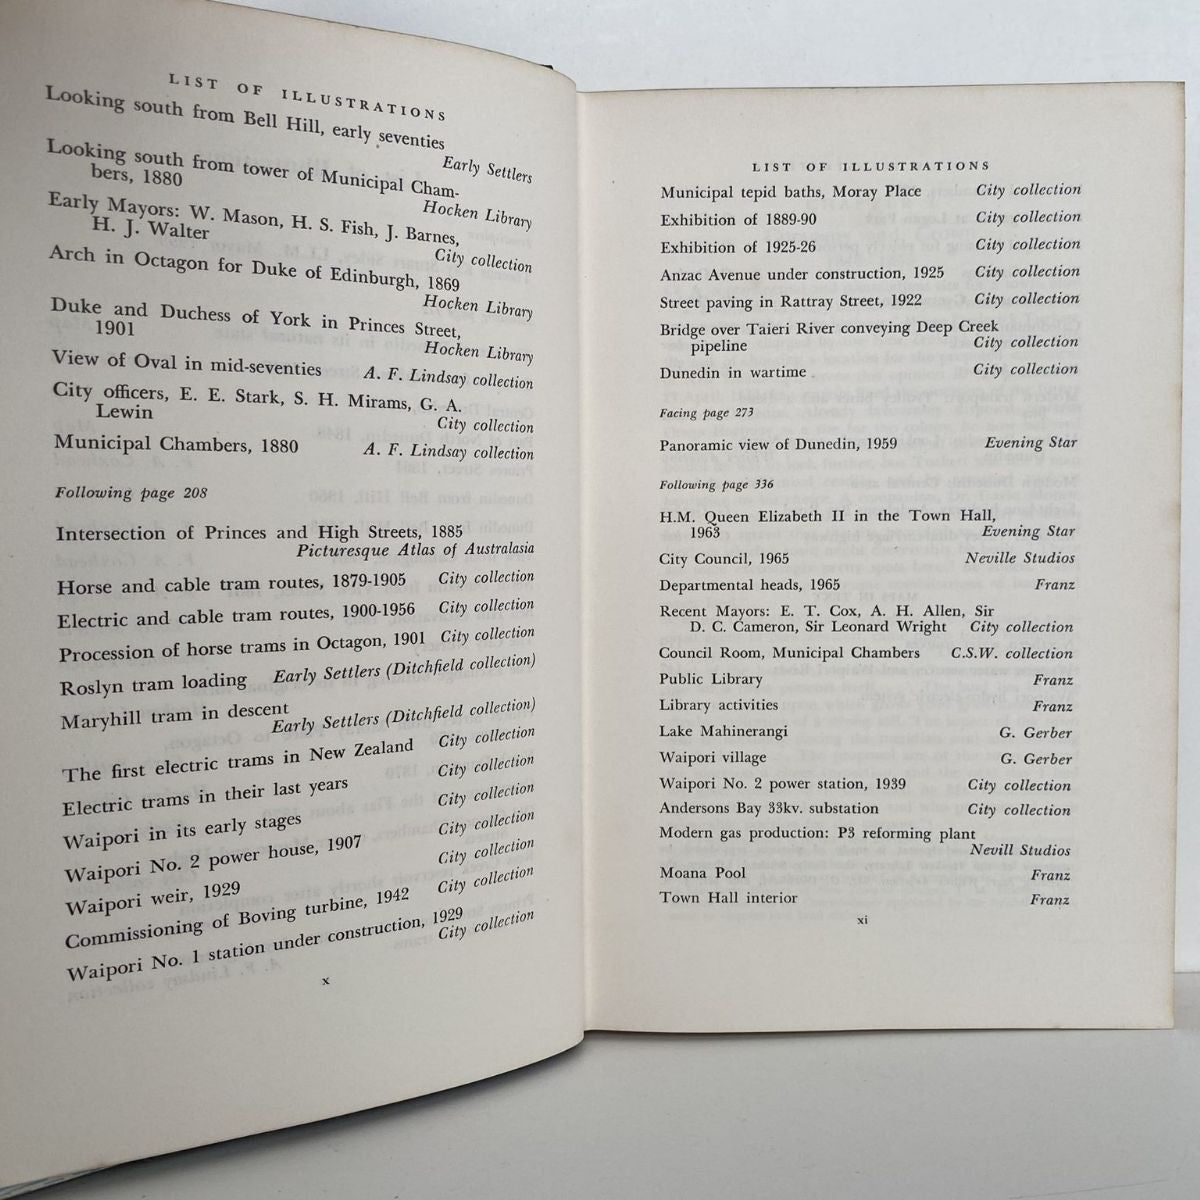 LIST OF ILLUSTRATIONS
Looking south from Bell Hill, early seventies
Early Settlers
Looking south from tower of Municipal Cham-
bers, 1880
Hocken Library
Early Mayors: W. Mason, H. S. Fish, J. Barnes,
H. J. Walter
City collection
Arch in Octagon for Duke of Edinburgh, 1869
Hocken Library
Duke and Duchess of York in Princes Street,
1901
Hocken Library
View of Oval in mid-seventies A. F. Lindsay collection
City officers, E. E. Stark, S. H. Mirams, G. A.
Lewin
City collection
Municipal Chambers, 1880 A. F. Lindsay collection
Following page 208
Intersection of Princes and High Streets, 1885
Picturesque Atlas of Australasia
Horse and cable tram routes, 1879-1905 City collection
Electric and cable tram routes, 1900-1956 City collection
Procession of horse trams in Octagon, 1901 City collection
Roslyn tram loading Early Settlers (Ditchfield collection)
Maryhill tram in descent
Early Settlers (Ditchfield collection)
The first electric trams in New Zealand City collection
Electric trams in their last years City collection
Waipori in its early stages City collection
Waipori No. 2 power house, 1907 City collection
Waipori weir, 1929 City collection
Commissioning of Boving turbine, 1942 City collection
Waipori No. 1 station under construction, 1929
City collection
x
LIST OF ILLUSTRATIONS
Municipal tepid baths, Moray Place City collection
Exhibition of 1889-90 City collection
Exhibition of 1925-26 City collection
Anzac Avenue under construction, 1925 City collection
Street paving in Rattray Street, 1922 City collection
Bridge over Taieri River conveying Deep Creek
pipeline City collection
Dunedin in wartime City collection
Facing page 273
Panoramic view of Dunedin, 1959 Evening Star
Following page 336
H.M. Queen Elizabeth II in the Town Hall,
1963 Evening Star
City Council, 1965 Neville Studios
Departmental heads, 1965 Franz
Recent Mayors: E. T. Cox, A. H. Allen, Sir
D. C. Cameron, Sir Leonard Wright City collection
Council Room, Municipal Chambers C.S.W. collection
Public Library Franz
Library activities Franz
Lake Mahinerangi G. Gerber
Waipori village G. Gerber
Waipori No. 2 power station, 1939 City collection
Andersons Bay 33kv. substation City collection
Modern gas production: P3 reforming plant
Nevill Studios
Moana Pool Franz
Town Hall interior Franz
xi